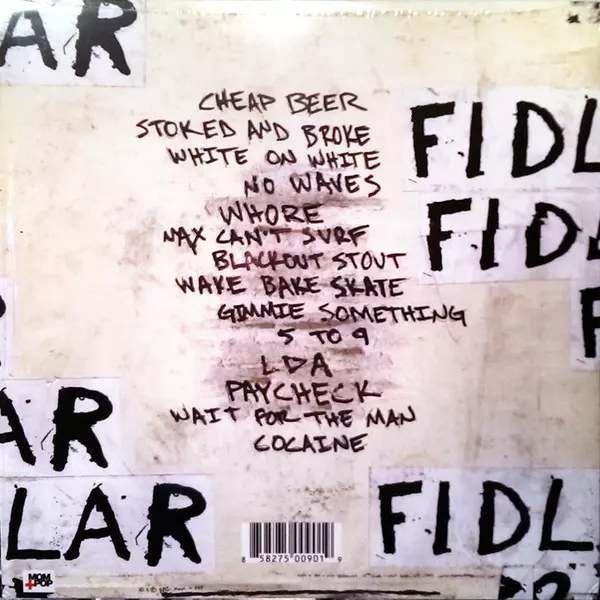 AR
CHEAP BEER
STOKED AND BROKE
WHITE ON WHITE
NO WAVES
WHORE
MAX CAN'T SURF
BLACKOUT STOUT
WAKE BAKE SKATE
GIMMIE SOMETHING
5 TO 9
LDA
PAYCHECK
WAIT FOR THE MAN
COCAINE
FIDL
FID
F
AR
LAR
FIDL
8 58275 00901 9
MOM+POP